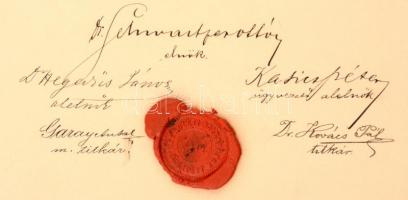 Dr. Schwartzer Ottó
elnök.
Dr Hegedűs János
alelnök
Kasics Péter
ügyvezető alelnök
Garay Antal
m. titkár
Dr. Kovács Pál
titkár.